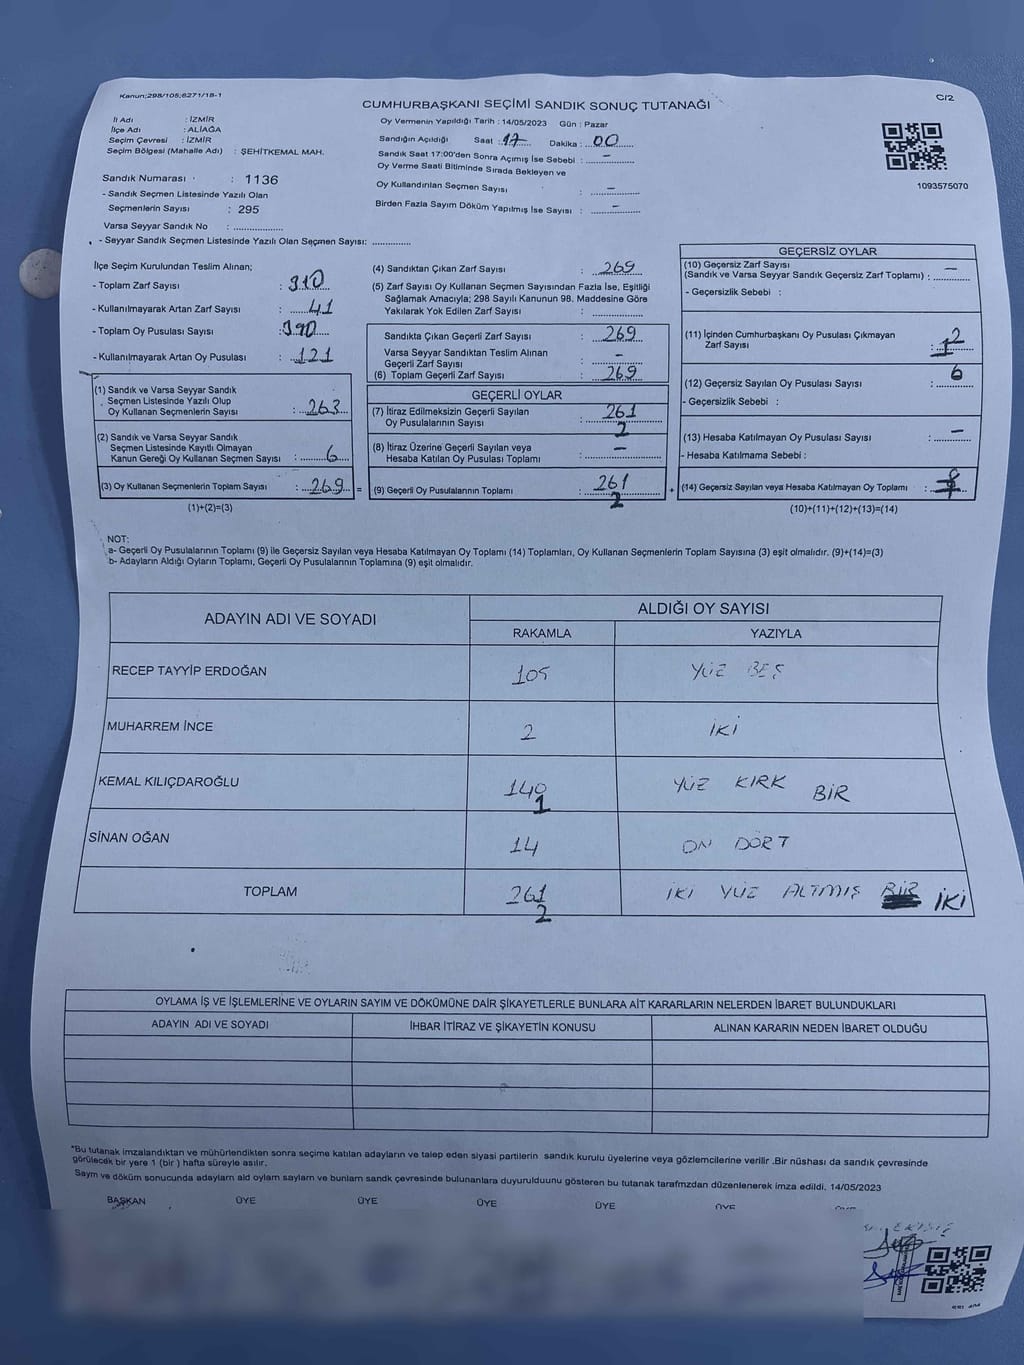 Kanun;298/105;6271/18-1
C/2
CUMHURBAŞKANI SEÇİMİ SANDIK SONUÇ TUTANAĞI
İl Adı : İZMİR
İlçe Adı : ALİAĞA
Seçim Çevresi : İZMİR
Seçim Bölgesi (Mahalle Adı) : ŞEHİTKEMAL MAH.
Sandık Numarası : 1136
- Sandık Seçmen Listesinde Yazılı Olan
Seçmenlerin Sayısı : 295
Varsa Seyyar Sandık No : ..............
- Seyyar Sandık Seçmen Listesinde Yazılı Olan Seçmen Sayısı: ............
Oy Vermenin Yapıldığı Tarih : 14/05/2023 Gün : Pazar
Sandığın Açıldığı Saat : 17 Dakika : 00
Sandık Saat 17:00'den Sonra Açımış İse Sebebi : -
Oy Verme Saati Bitiminde Sırada Bekleyen ve
Oy Kullandırılan Seçmen Sayısı : -
Birden Fazla Sayım Döküm Yapılmış İse Sayısı : -
1093575070
İlçe Seçim Kurulundan Teslim Alınan;
- Toplam Zarf Sayısı : 310
- Kullanılmayarak Artan Zarf Sayısı : 41
- Toplam Oy Pusulası Sayısı : 390
- Kullanılmayarak Artan Oy Pusulası : 121
(1) Sandık ve Varsa Seyyar Sandık
Seçmen Listesinde Yazılı Olup
Oy Kullanan Seçmenlerin Sayısı : 263
(2) Sandık ve Varsa Seyyar Sandık
Seçmen Listesinde Kayıtlı Olmayan
Kanun Gereği Oy Kullanan Seçmen Sayısı : 6
(3) Oy Kullanan Seçmenlerin Toplam Sayısı : 269 =
(1)+(2)=(3)
(4) Sandıktan Çıkan Zarf Sayısı : 269
(5) Zarf Sayısı Oy Kullanan Seçmen Sayısından Fazla İse, Eşitliği
Sağlamak Amacıyla; 298 Sayılı Kanunun 98. Maddesine Göre
Yakılarak Yok Edilen Zarf Sayısı : ..............
Sandıkta Çıkan Geçerli Zarf Sayısı : 269
Varsa Seyyar Sandıktan Teslim Alınan
Geçerli Zarf Sayısı : -
(6) Toplam Geçerli Zarf Sayısı : 269
GEÇERLİ OYLAR
(7) İtiraz Edilmeksizin Geçerli Sayılan
Oy Pusulalarının Sayısı : 261
2
(8) İtiraz Üzerine Geçerli Sayılan veya
Hesaba Katılan Oy Pusulası Toplamı : -
(9) Geçerli Oy Pusulalarının Toplamı : 261 +
2
GEÇERSİZ OYLAR
(10) Geçersiz Zarf Sayısı
(Sandık ve Varsa Seyyar Sandık Geçersiz Zarf Toplamı) : -
- Geçersizlik Sebebi :
(11) İçinden Cumhurbaşkanı Oy Pusulası Çıkmayan
Zarf Sayısı :
(12) Geçersiz Sayılan Oy Pusulası Sayısı : 6
- Geçersizlik Sebebi :
(13) Hesaba Katılmayan Oy Pusulası Sayısı : -
- Hesaba Katılmama Sebebi :
(14) Geçersiz Sayılan veya Hesaba Katılmayan Oy Toplamı :
(10)+(11)+(12)+(13)=(14)
NOT:
a- Geçerli Oy Pusulalarının Toplamı (9) ile Geçersiz Sayılan veya Hesaba Katılmayan Oy Toplamı (14) Toplamları, Oy Kullanan Seçmenlerin Toplam Sayısına (3) eşit olmalıdır. (9)+(14)=(3)
b- Adayların Aldığı Oyların Toplamı, Geçerli Oy Pusulalarının Toplamına (9) eşit olmalıdır.
ADAYIN ADI VE SOYADI ALDIĞI OY SAYISI
RAKAMLA YAZIYLA
RECEP TAYYİP ERDOĞAN 105 YÜZ BEŞ
MUHARREM İNCE 2 İKİ
KEMAL KILIÇDAROĞLU 140 YÜZ KIRK BİR
1
SİNAN OĞAN 14 ON DÖRT
TOPLAM 261 İKİ YÜZ ALTMIŞ BİR İKİ
2
OYLAMA İŞ VE İŞLEMLERİNE VE OYLARIN SAYIM VE DÖKÜMÜNE DAİR ŞİKAYETLERLE BUNLARA AİT KARARLARIN NELERDEN İBARET BULUNDUKLARI
ADAYIN ADI VE SOYADI İHBAR İTİRAZ VE ŞİKAYETİN KONUSU ALINAN KARARIN NEDEN İBARET OLDUĞU
*Bu tutanak imzalandıktan ve mühürlendikten sonra seçime katılan adayların ve talep eden siyasi partilerin sandık kurulu üyelerine veya gözlemcilerine verilir .Bir nüshası da sandık çevresinde
görülecek bir yere 1 (bir ) hafta süreyle asılır.
Sayım ve döküm sonucunda adayların ald oyların sayların ve bunların sandk çevresinde bulunanlara duyurulduunu gösteren bu tutanak tarafmzdan düzenlenerek imza edildi. 14/05/2023
BAŞKAN ÜYE ÜYE ÜYE ÜYE ÜYE